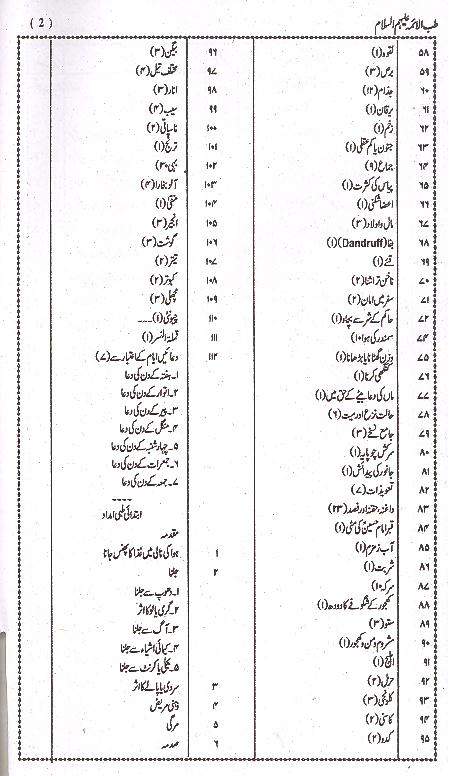 طب الائمہ علیہم السلام
( 2 )
۵۸ لقوہ (۱)
۵۹ برص (۳)
۶۰ جذام (۱۲)
۶۱ یرقان (۱)
۶۲ زخم (۱)
۶۳ جنون یا کم عقلی (۱)
۶۴ جماع (۹)
۶۵ پیاس کی کثرت (۱)
۶۶ اعضا شکنی (۱)
۶۷ مال و اولاد (۳)
۶۸ بفا (Dandruff) (۱)
۶۹ قئے (۱)
۷۰ ناخن تراشنا (۲)
۷۱ سفر میں امان (۲)
۷۲ حاکم کے شر سے بچاؤ (۱)
۷۴ سمندر کی ہوا (۱۰)
۷۵ وزن گھٹانا یا بڑھانا (۱)
۷۶ کنگھی کرنا (۱)
۷۷ ماں کی دعا بیٹے کے حق میں (۱)
۷۸ حالت نزع اور میت (۶)
۷۹ جامع نسخے (۳)
۸۰ سرکش چوپایہ (۱)
۸۱ جانور کی پیدائش (۱)
۸۲ تعویذات (۷)
۸۳ داغنہ، حقنہ اور فصد (۲۳)
۸۴ قبر امام حسینؑ کی مٹی (۱)
۸۵ آب زمزم (۱)
۸۶ شربت (۱)
۸۷ سرکہ (۱۰)
۸۸ کھجور کے شگوفے کا دودھ (۱)
۸۹ ستو (۳)
۹۰ مشروم و من و کھجور (۱)
۹۱ اہلیج (۱)
۹۲ حرمل (۲)
۹۳ کلونجی (۳)
۹۴ کاسنی (۲)
۹۵ کدو (۲)
۹۶ بیگن (۳)
۹۷ مختلف تیل (۴)
۹۸ انار (۳)
۹۹ سیب (۴)
۱۰۰ ناسپاتی (۲)
۱۰۱ ترنج (۱)
۱۰۲ بہی (۲۰)
۱۰۳ آلو بخارا (۴)
۱۰۴ منقی (۱)
۱۰۵ انجیر (۳)
۱۰۶ گوشت (۳)
۱۰۷ تیتر (۲)
۱۰۸ کبوتر (۲)
۱۰۹ مچھلی (۳)
۱۱۰ چیونٹی (۱)۔۔۔
۱۱۱ قملۃ النسر (۱)
۱۱۲ دعائیں ایام کے اعتبار سے (۷)
۱۔ ہفتہ کے دن کی دعا
۲۔ اتوار کے دن کی دعا
۳۔ پیر کے دن کی دعا
۴۔ منگل کے دن کی دعا
۵۔ چہار شنبہ کے دن کی دعا
۶۔ جمعرات کے دن کی دعا
۷۔ جمعہ کے دن کی دعا
ابتدائی طبی امداد
مقدمہ
۱ ہوا کی نالی میں غذا کا پھنس جانا
۲ جلنا
۱۔ دھوپ سے جلنا
۲۔ گرمی یا لو کا اثر
۳۔ آگ سے جلنا
۴۔ کیمیائی اشیاء سے جلنا
۵۔ بجلی یا کرنٹ سے جلنا
۳ سردی یا پالے کا اثر
۴ ذہنی مریض
۵ مرگی
۶ صدمہ